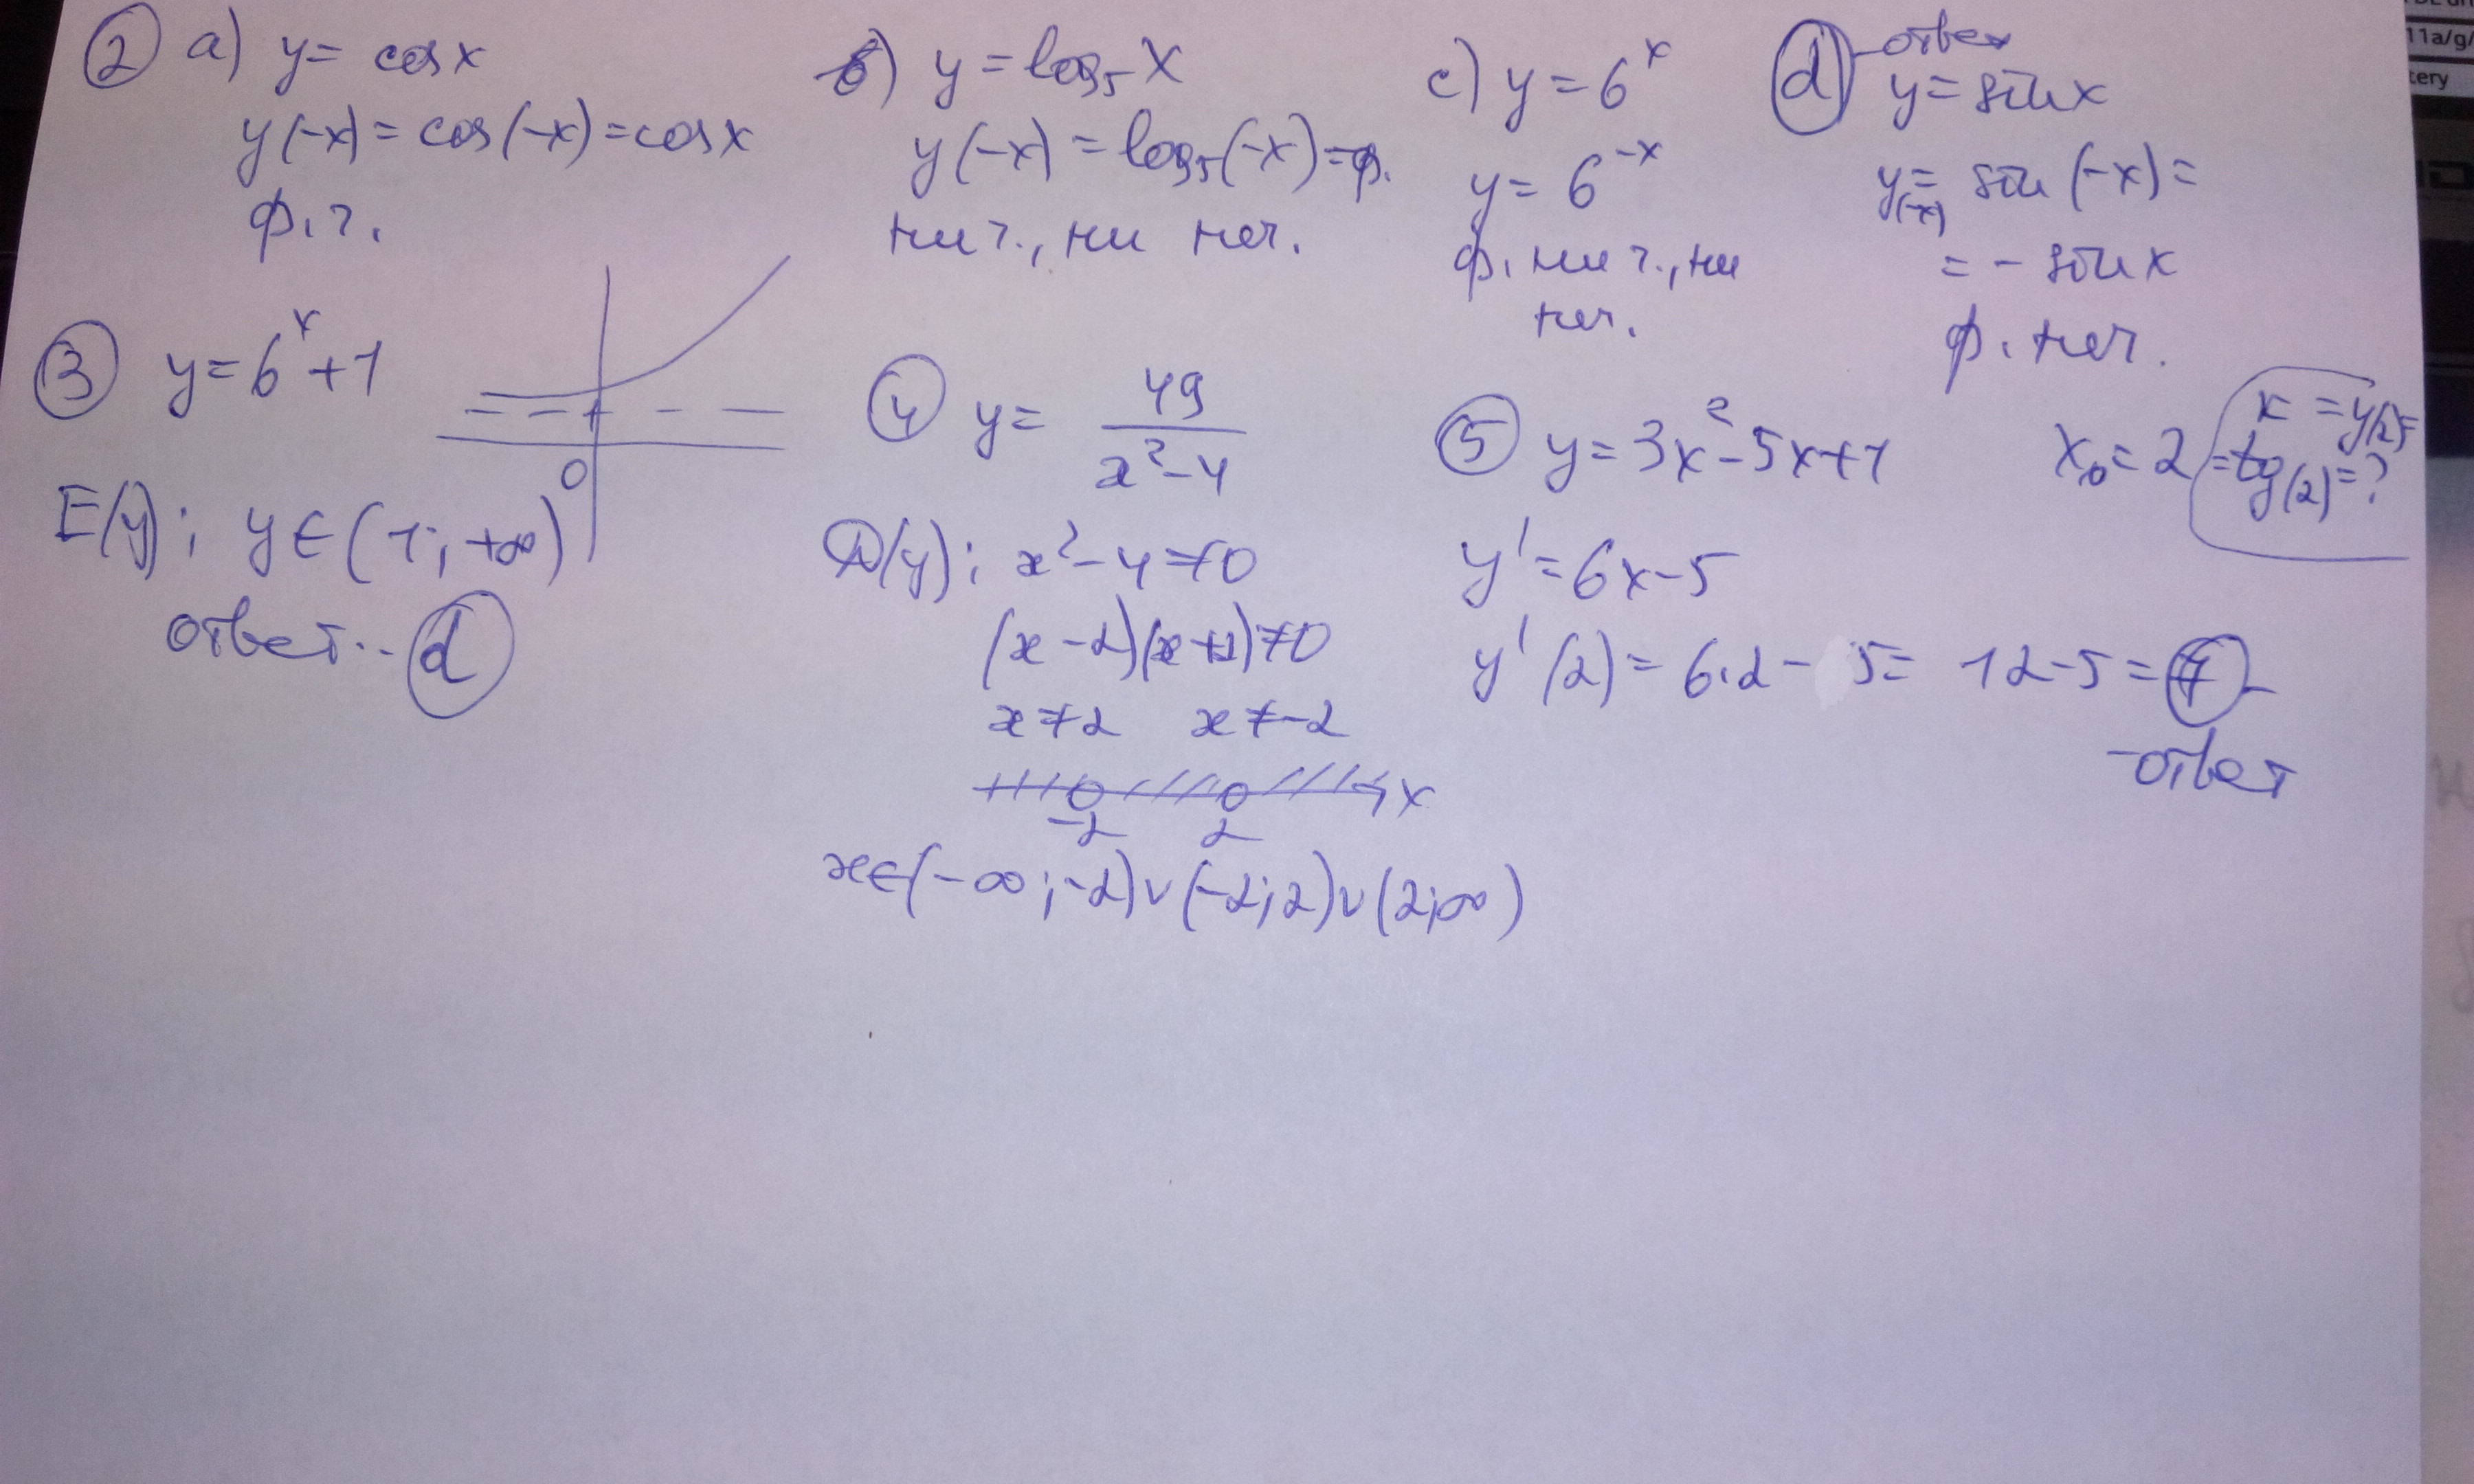 ② a) y = cos x
y(-x) = cos(-x) = cos x
ф. ч.
б) y = log₅ x
y(-x) = log₅(-x) = ф.
ни ч., ни неч.
c) y = 6ˣ
y = 6⁻ˣ
ф. ни ч., ни
неч.
d - ответ
y = sin x
y(-x) = sin(-x) =
= - sin x
ф. неч.
③ y = 6ˣ + 1
1
0
E(y); y ∈ (1; +∞)
ответ.. d
④ y = 49/(x² - 4)
D(y); x² - 4 ≠ 0
(x - 2)(x + 2) ≠ 0
x ≠ 2 x ≠ -2
x
-2 2
x ∈ (-∞; -2) ∪ (-2; 2) ∪ (2; ∞)
⑤ y = 3x² - 5x + 1 x₀ = 2
к = y'(2) =
= tg(2) = ?
y' = 6x - 5
y'(2) = 6·2 - 5 = 12 - 5 = 7 -
- ответ
11a/g/
tery